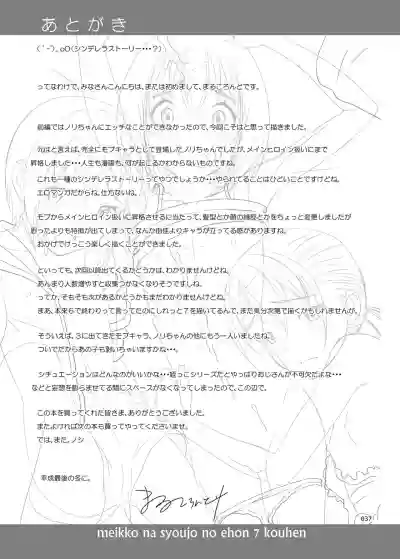 あとがき
(´-`).oO(シンデレラストーリー・・・?)
ってなわけで、みなさんこんにちは、または初めまして、まるころんどです。
前編ではノリちゃんにエッチなことができなかったので、今回こそはと思って描きました。
元はと言えば、完全にモブキャラとして登場したノリちゃんでしたが、メインヒロイン扱いにまで
昇格しました・・・人生も漫画も、何が起こるかわからないものですね。
これも一種のシンデレラストーリーってやつでしょうか・・・やられてることはひどいことですけどね。
エロマンガだからね、仕方ないね。
モブからメインヒロイン扱いに昇格させるに当たって、髪型とか顔の
思ったよりも
おかげでけっこう楽しく描くことができました。
といっても、次回以降出てくるかどうかは、わかりませんけどね。
あんまり人数増やすと収集つかなくなりそうですしね。
ってか、そもそも次があるかどうかもまだわかりませんけどね。
まあ、本来5で終わりって言ってたのにしれっと7を描いてるんで、また気分次第で描くかもしれませんが。
そういえば、3に出てきたモブキャラ、ノリちゃんの他にもう一人いましたね。
ついでだからあの子も
シチュエーションはどんなのがいいかな・・・
などと妄想を膨らませてる間にスペースがなくなってしまったので、この辺で。
この本を買ってくれた皆さま、ありがとうございました。
またよければ次の本も買ってやってくださいませ。
では、また。ノシ
平成最後の冬に。
037
meikko na syoujo no ehon 7 kouhen